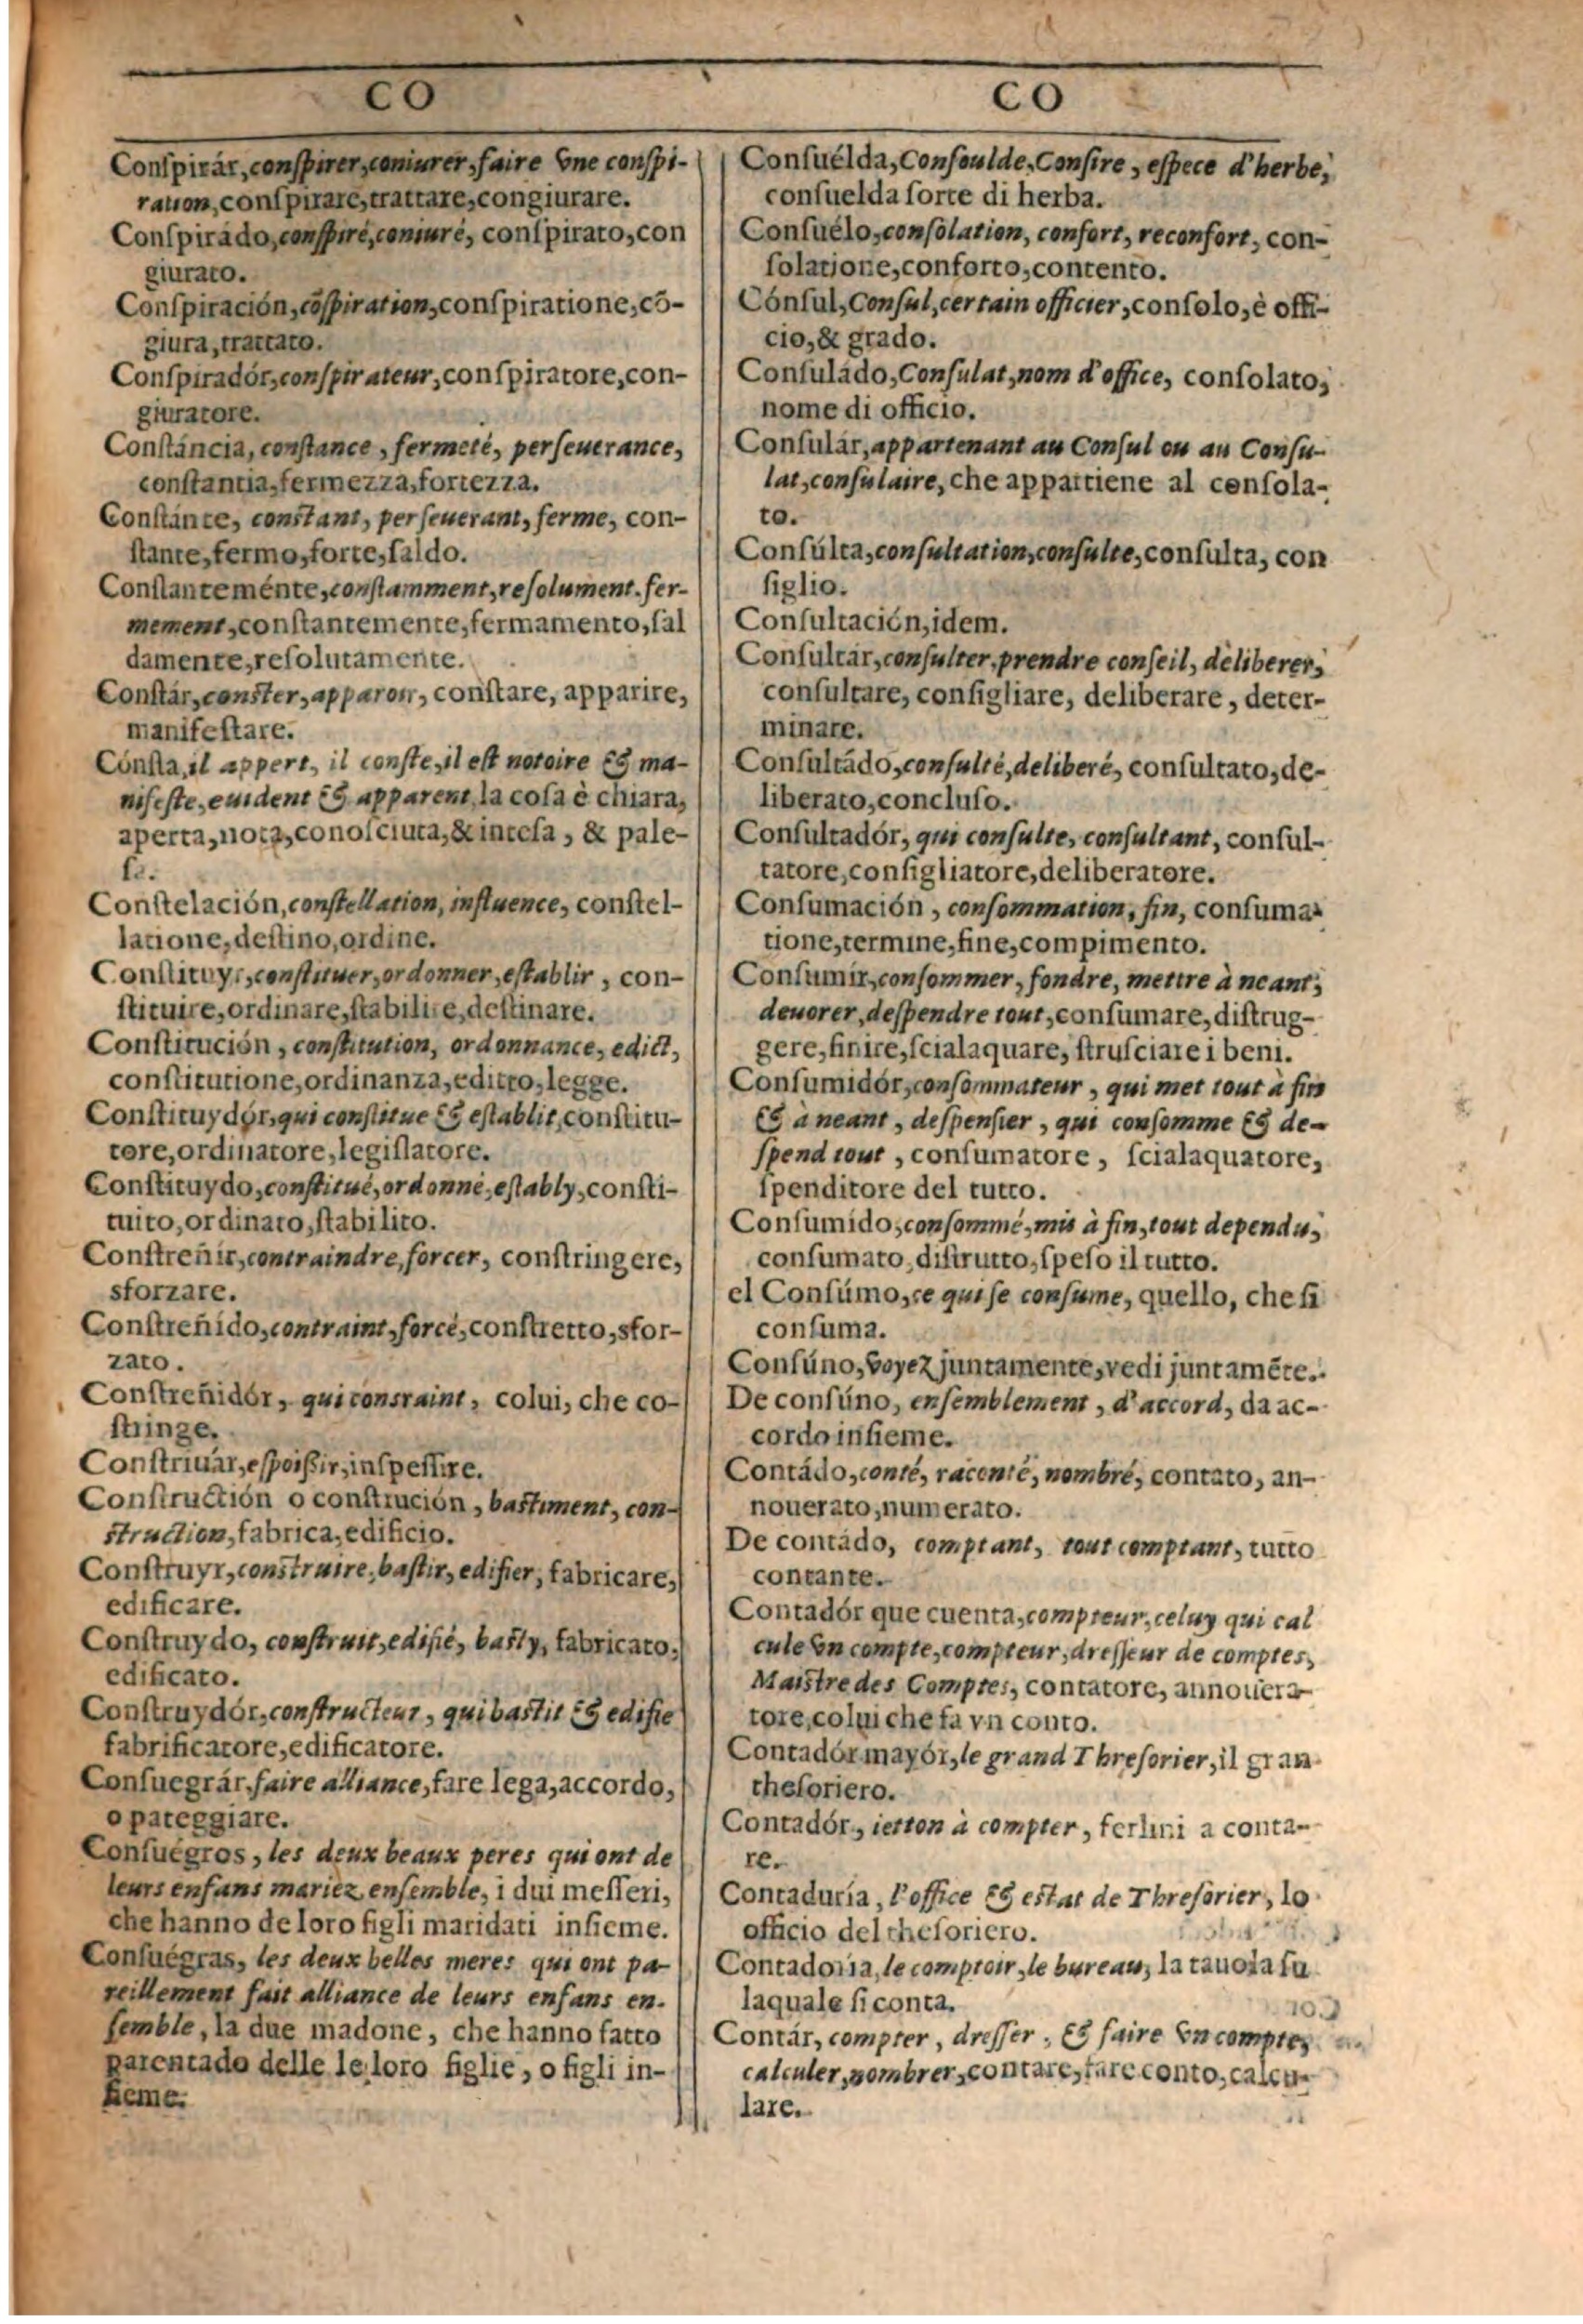 CO
Conſpirár, conſpirer, coniurer, faire vne conſpi-
ration, conſpirare, trattare, congiurare.
Conſpirádo, conſpiré, coniuré, conſpirato, con
giurato.
Conſpiración, cõſpiration, conſpiratione, cõ-
giura, trattato.
Conſpiradór, conſpirateur, conſpiratore, con-
giuratore.
Conſtáncia, conſtance, fermeté, perſeuerance,
conſtantia, fermezza, fortezza.
Conſtánte, conſtant, perſeuerant, ferme, con-
ſtante, fermo, forte, ſaldo.
Conſtanteménte, conſtamment, reſolument. fer-
mement, conſtantemente, fermamento, ſal
damente, reſolutamente.
Conſtár, conſter, apparoir, conſtare, apparire,
manifeſtare.
Cónſta, il appert, il conſte, il eſt notoire & ma-
nifeſte, euident & apparent, la coſa è chiara,
aperta, nota, conoſciuta, & inteſa, & pale-
ſe.
Conſtelación, conſtellation, influence, conſtel-
latione, deſtino, ordine.
Conſtituyr, conſtituer, ordonner, eſtablir, con-
ſtituire, ordinare, ſtabilire, deſtinare.
Conſtitución, conſtitution, ordonnance, edict,
conſtitutione, ordinanza, editto, legge.
Conſtituydór, qui conſtitue & eſtablit, conſtitu-
tore, ordinatore, legiſlatore.
Conſtituydo, conſtitué, ordonné, eſtably, conſti-
tuito, ordinato, ſtabilito.
Conſtreñir, contraindre, forcer, conſtringere,
sforzare.
Conſtreñído, contraint, forcé, conſtretto, sfor-
zato.
Conſtreñidór, qui consraint, colui, che co-
ſtringe.
Conſtriuár, eſpoiſſir, inſpeſſire.
Conſtructión o conſtrución, baſtiment, con-
ſtruction, fabrica, edificio.
Conſtruyr, conſtruire, baſtir, edifier, fabricare,
edificare.
Conſtruydo, conſtruit, edifié, baſty, fabricato,
edificato.
Conſtruydór, conſtructeur, qui baſtit & edifie
fabrificatore, edificatore.
Conſuegrár, faire alliance, fare lega, accordo,
o pateggiare.
Conſuégros, les deux beaux peres qui ont de
leurs enfans mariez enſemble, i dui meſſeri,
che hanno de loro figli maridati inſieme.
Conſuégras, les deux belles meres qui ont pa-
reillement fait alliance de leurs enfans en-
ſemble, la due madone, che hanno fatto
parentado delle le loro figlie, o figli in-
ſieme.
CO
Conſuélda, Conſoulde, Conſire, eſpece d'herbe,
conſuelda ſorte di herba.
Conſuélo, conſolation, confort, reconfort, con-
ſolatione, conforto, contento.
Cónſul, Conſul, certain officier, conſolo, è offi-
cio, & grado.
Conſuládo, Conſulat, nom d'office, conſolato,
nome di officio.
Conſulár, appartenant au Conſul ou au Conſu-
lat, conſulaire, che appartiene al conſola-
to.
Conſúlta, conſultation, conſulte, conſulta, con
ſiglio.
Conſultación, idem.
Conſultár, conſulter, prendre conſeil, deliberer,
conſultare, conſigliare, deliberare, deter-
minare.
Conſultádo, conſulté, deliberé, conſultato, de-
liberato, concluſo.
Conſultadór, qui conſulte, conſultant, conſul-
tatore, conſigliatore, deliberatore.
Conſumación, conſommation, fin, conſuma-
tione, termine, fine, compimento.
Conſumír, conſommer, fondre, mettre à neant,
deuorer, deſpendre tout, conſumare, diſtrug-
gere, finire, ſcialaquare, ſtruſciare i beni.
Conſumidór, conſommateur, qui met tout à fin
& à neant, deſpenſier, qui conſomme & de-
ſpend tout, conſumatore, ſcialaquatore,
ſpenditore del tutto.
Conſumído, conſommé, mis à fin, tout dependu,
conſumato, diſtrutto, ſpeſo il tutto.
el Conſúmo, ce qui ſe conſume, quello, che ſi
conſuma.
Conſúno, voyez juntamente, vedi juntamẽte.
De conſúno, enſemblement, d'accord, da ac-
cordo inſieme.
Contádo, conté, raconté, nombré, contato, an-
nouerato, numerato.
De contádo, comptant, tout comptant, tutto
contante.
Contadór que cuenta, compteur, celuy qui cal
cule vn compte, compteur, dreſſeur de comptes,
Maiſtre des Comptes, contatore, annouera-
tore, colui che fa vn conto.
Contadór mayór, le grand Threſorier, il gran
theſoriero.
Contadór, ietton à compter, ferlini a conta-
re.
Contaduría, l'office & eſtat de Threſorier, lo
officio del theſoriero.
Contadoría, le comptoir, le bureau, la tauola ſu
laquale ſi conta.
Contár, compter, dreſſer, & faire vn compte,
calculer, nombrer, contare, fare conto, calcu-
lare.